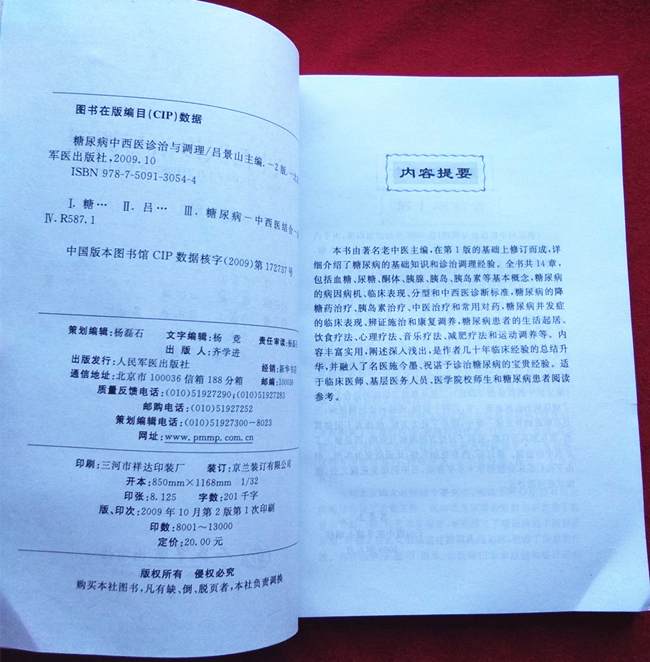 图书在版编目(CIP)数据
糖尿病中西医诊治与调理/吕景山主编.—2版.—北
军医出版社,2009.10
ISBN 978-7-5091-3054-4
Ⅰ.糖… Ⅱ.吕… Ⅲ.糖尿病—中西医结合—
Ⅳ.R587.1
中国版本图书馆CIP数据核字(2009)第172737号
策划编辑:杨磊石 文字编辑:杨竞 责任审读:杨磊石
出版人:齐学进
出版发行:人民军医出版社 经销:新华书店
通信地址:北京市100036信箱188分箱 邮编:100036
质量反馈电话:(010)51927290;(010)51927283
邮购电话:(010)51927252
策划编辑电话:(010)51927300-8023
网址:www.pmmp.com.cn
印刷:三河市祥达印装厂 装订:京兰装订有限公司
开本:850mm×1168mm 1/32
印张:8.125 字数:201千字
版、印次:2009年10月第2版第1次印刷
印数:8001~13000
定价:20.00元
版权所有 侵权必究
购买本社图书,凡有缺、倒、脱页者,本社负责调换
内容提要
本书由著名老中医主编,在第1版的基础上修订而成,详
细介绍了糖尿病的基础知识和诊治调理经验。全书共14章,
包括血糖、尿糖、酮体、胰腺、胰岛、胰岛素等基本概念,糖尿病
的病因病机、临床表现、分型和中西医诊断标准,糖尿病的降
糖药治疗、胰岛素治疗、中医治疗和常用对药,糖尿病并发症
的临床表现、辨证施治和康复调养,糖尿病患者的生活起居、
饮食疗法、心理疗法、音乐疗法、减肥疗法和运动调养等。内
容丰富实用,阐述深入浅出,是作者几十年临床经验的总结升
华,并融入了名医施今墨、祝谌予诊治糖尿病的宝贵经验。适
于临床医师、基层医务人员、医学院校师生和糖尿病患者阅读
参考。